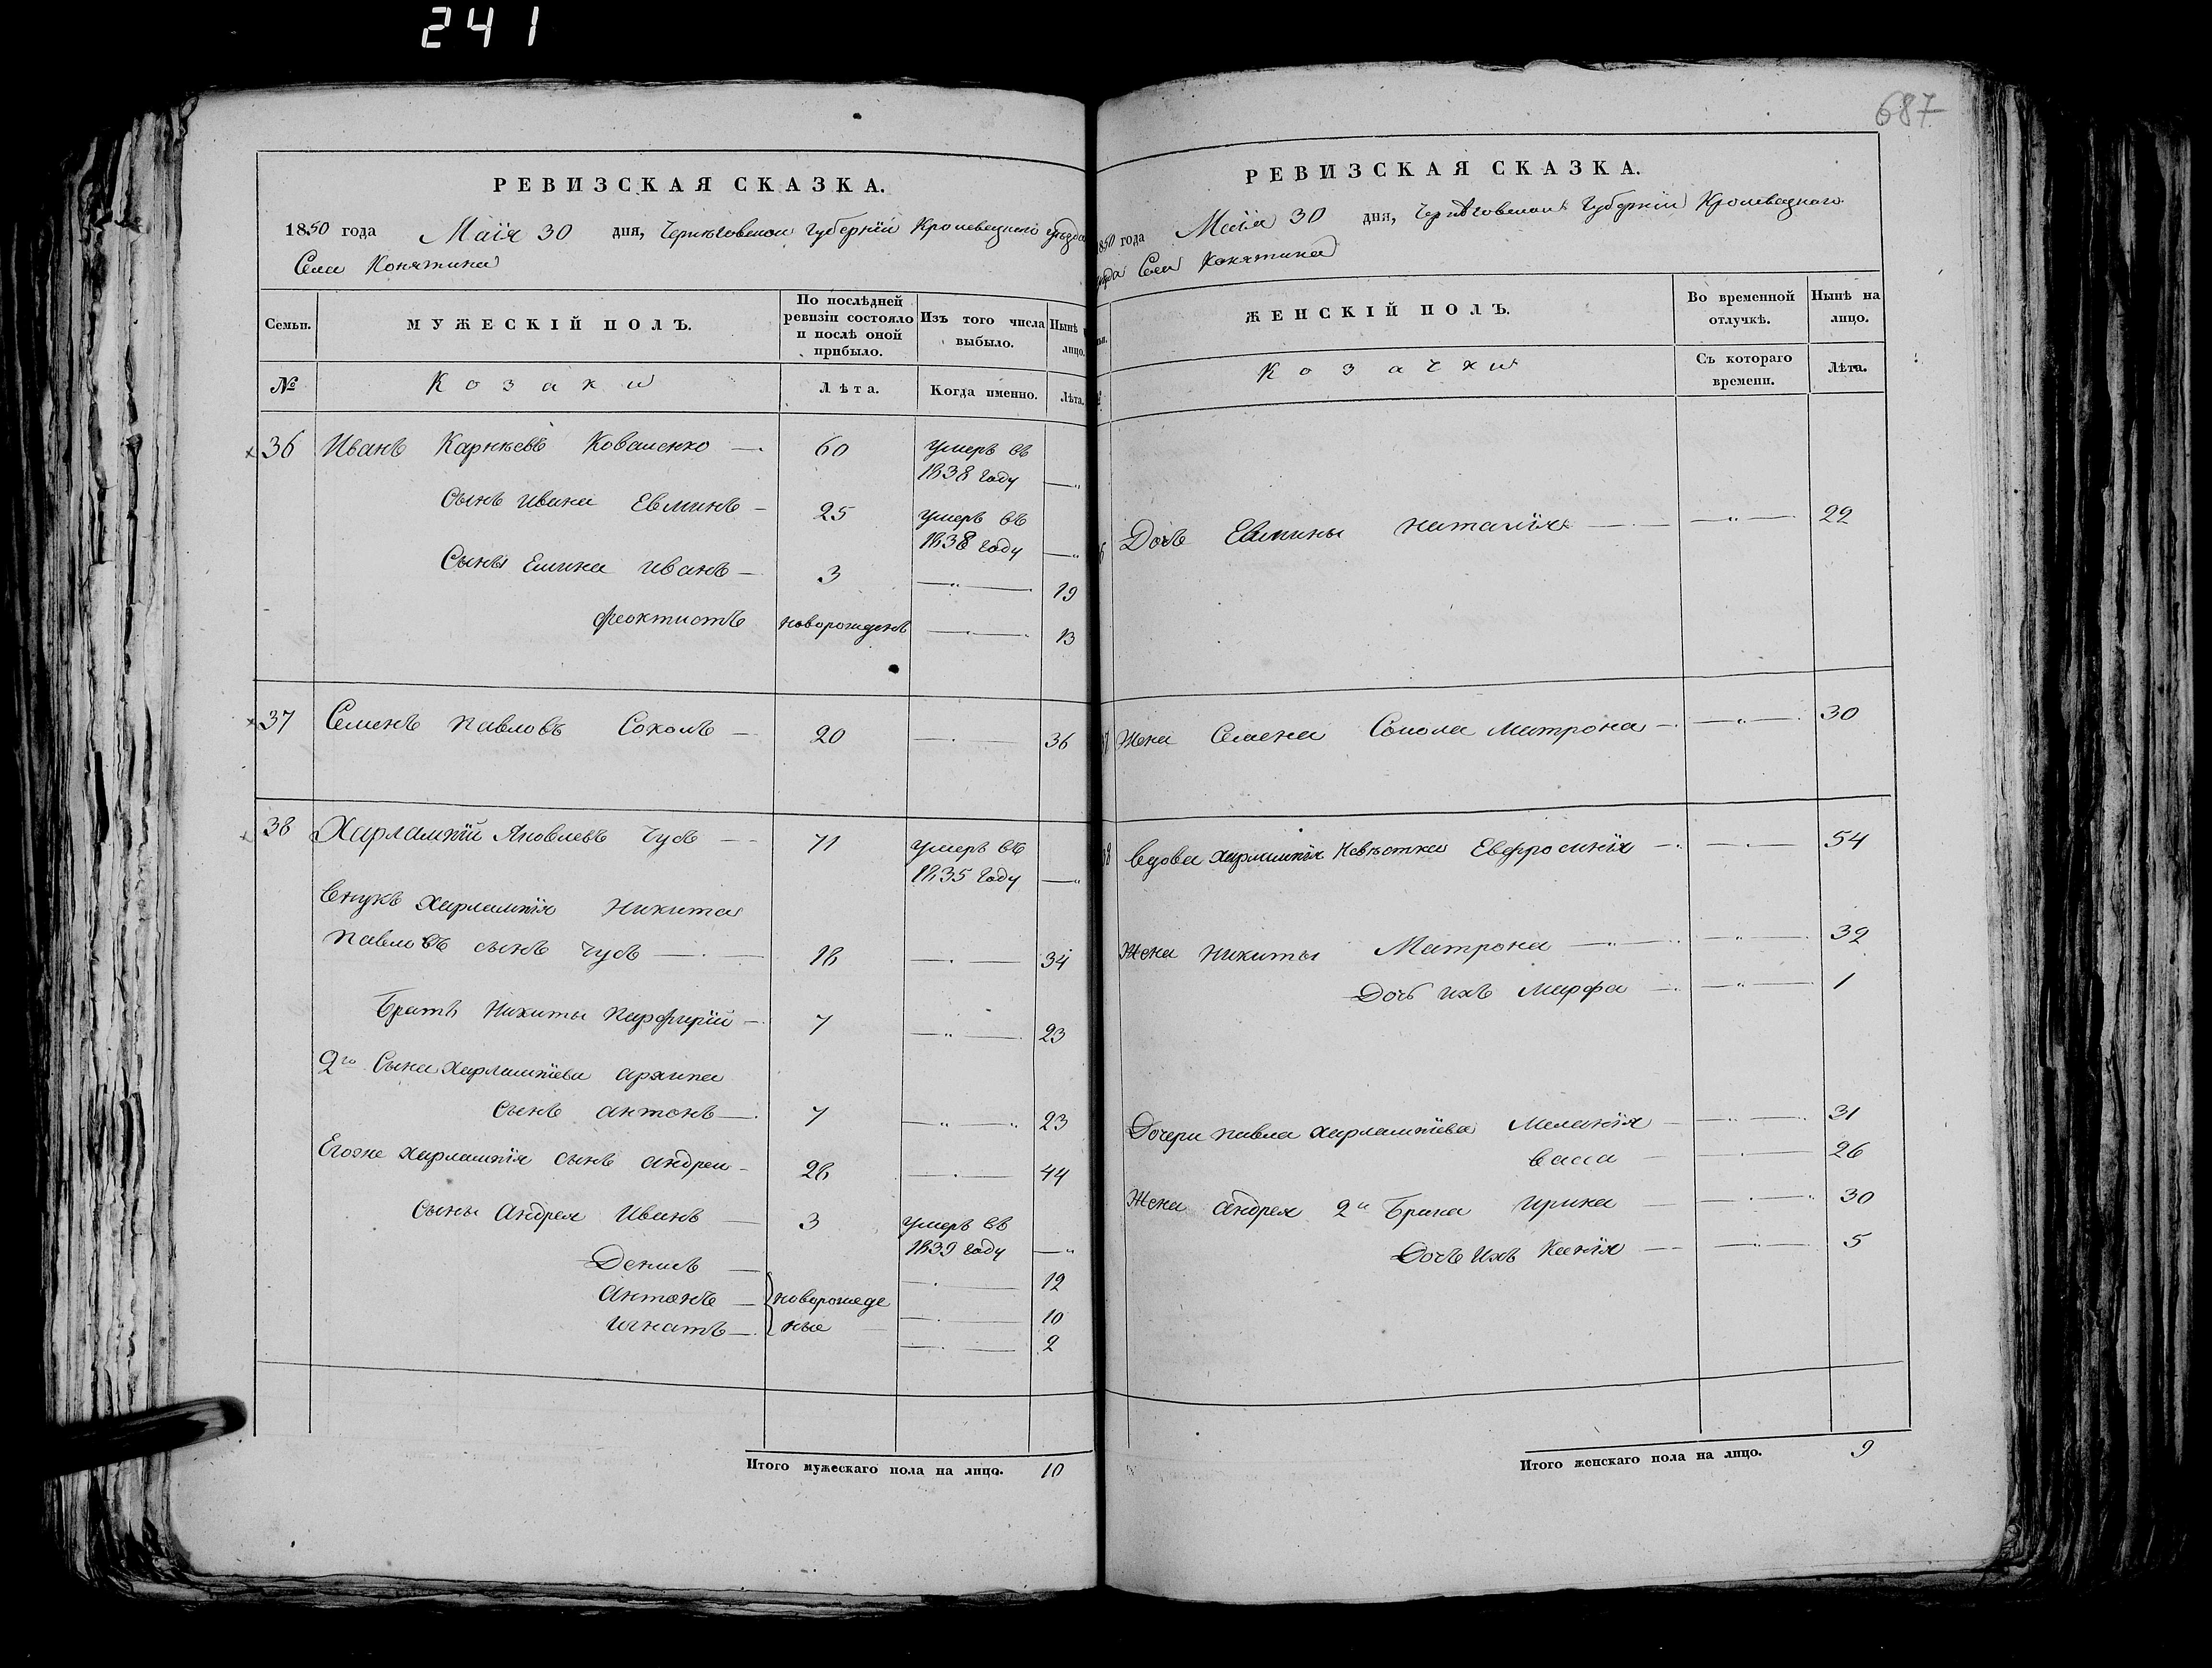 241
687
РЕВИЗСКАЯ СКАЗКА.
1850 года Маія 30 дня, Черниговской Губерніи Кролевецкого уѣзда
Села Конятина
Семьи. МУЖЕСКІЙ ПОЛЪ. По послѣдней ревизіи состояло и послѣ оной прибыло. Изъ того числа выбыло. Нынѣ лицо.
№ Козаки Лѣта. Когда именно. Лѣта.
36 Иванъ Карнѣевъ Коваленко — 60 умеръ въ
1838 году —"
Сынъ Ивана Евминъ — 25 умеръ въ
1838 году —"
Сыны Емина Иванъ — 3 —"— 19
Феоктистъ новорожденъ —"— 13
37 Семенъ Павловъ Соколъ — 20 —"— 36
38 Харлампій Яковлевъ Чубъ — 71 умеръ въ
1835 году —"
Внукъ Харлампія Никита
Павловъ сынъ Чубъ — 18 —"— 34
Братъ Никиты Парфирій — 7 —"— 23
2го Сына Харлампіева Архипа
сынъ Антонъ — 7 —"— 23
Егоже Харлампія сынъ Андреи — 28 —"— 44
Сыны Андрея Иванъ — 3 умеръ въ
1839 году —"
Денисъ — —"— 12
Антонъ — новорожде —"— 10
Игнатъ — ные —"— 2
Итого мужескаго пола на лицо. 10
РЕВИЗСКАЯ СКАЗКА.
1850 года Маіа 30 дня, Черниговской Губерніи Кролевецкого
уѣзда Села Конятина
ЖЕНСКІЙ ПОЛЪ. Во временной отлучкѣ. Нынѣ на лицо.
Козачки Съ котораго времени. Лѣта.
Дочь Евмины Наталія — —"— 22
37 Жена Семена Сокола Матрона — —"— 30
38 Вдова Харлампія Невѣстка Евфросинія — —"— 54
Жена Никиты Матрона — —"— 32
Дочь ихъ Марфа — —"— 1
Дочери Павла Харлампіева Меланія — —"— 31
Васса — —"— 26
Жена Андрея 2го Брака Ирина — —"— 30
Дочь Ихъ Ксенія — —"— 5
Итого женскаго пола на лицо. 9